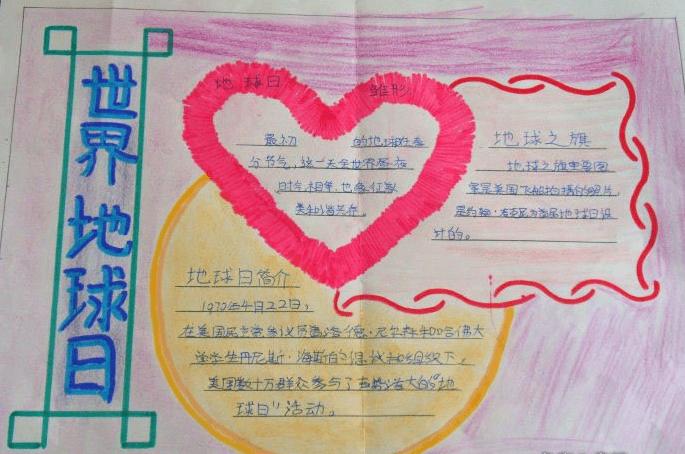 世界地球日
地球日 雏形
最初 的地球日在春
分节气，这一天全世界昼夜
时间相等，也象征
类和谐共存。
地球之旗
地球之旗里
美国飞船拍摄的照片，
是约翰·麦克
计的。
地球日简介
1970年4月22日，
在美国民主党参议员盖洛德·尼尔森和哈佛大
学学生丹尼斯·海斯的提议和组织下，
美国数十万群众参与了声势浩大的“地
球日”活动。